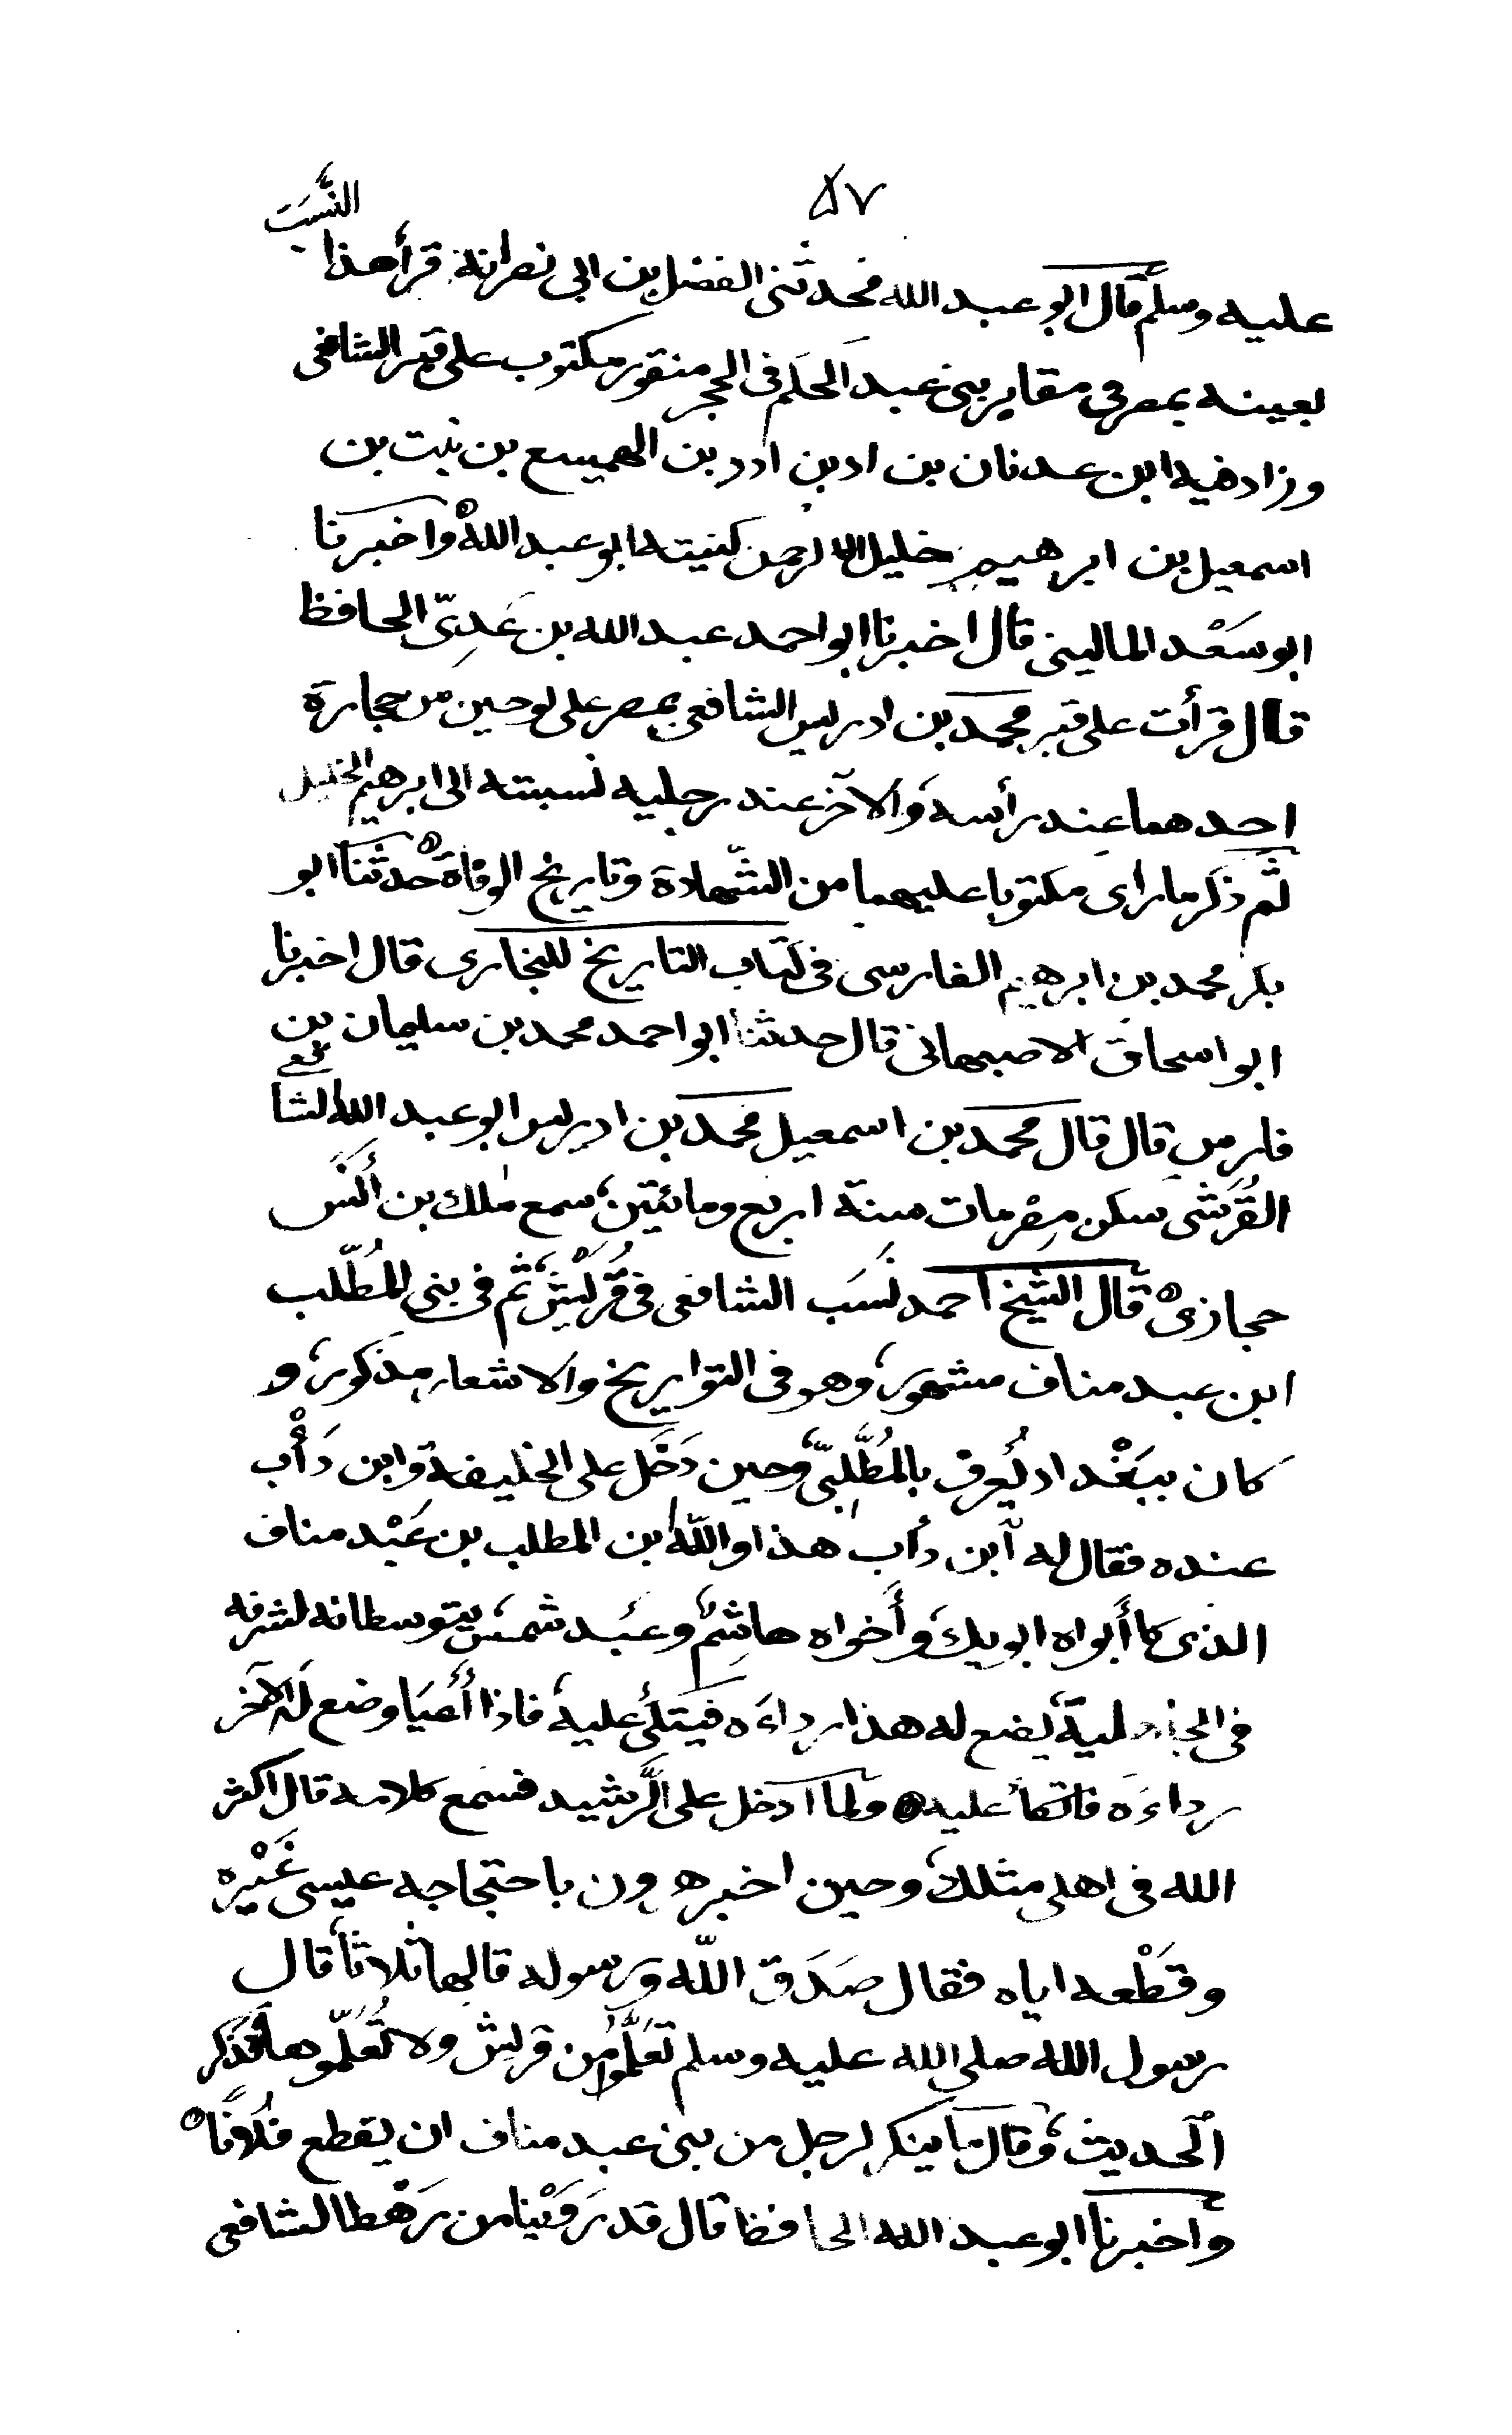 ٥٧
النَّسَب
عليه وسلم قال ابو عبد الله فحدثنى الفضل بن ابى نصر انه قرأ هذا
بعينه بمصر فى مقابر بنى عبد الحكم فى الحجر منقور مكتوب على قبر الشافعى
وزاد فيه ابن عدنان بن اد بن ادد بن الهميسع بن نبت بن
اسمعيل بن ابرهيم خليل الرحمن كنيته ابو عبد الله ه واخبرنا
ابو سَعْد المالينى قال اخبرنا ابو احمد عبد الله بن عَدِىّ الحافظ
قال قرأت على قبر محمد بن ادريس الشافعى بمصر على لوحين من حجارة
احدهما عند رأسه، والآخر عند رجليه نسبته الى ابرهيم الخليل
ثم ذكر ما راى مكتوبا عليهما من الشّهادة وتاريخ الوفاة ه حدثنا ابو
بكر محمد بن ابرهيم الفارسى فى كتاب التاريخ للبخارى قال اخبرنا
ابو اسحاق الاصبهانى قال حدثنا ابو احمد محمد بن سليمان بن
فارس قال قال محمد بن اسمعيل محمد بن ادريس ابو عبد الله الشافعى
القُرَشى سكن مِصْر مات سنة اربع ومائيتن، سمع ملك بن أَنَس
حجازى ه قال الشيخ احمد نَسَب الشافعى فى قُرَيْش، ثم فى بنى المُطَّلب
ابن عبد مناف مشهور، وهو فى التواريخ والاشعار مذكور، و
كان ببَغْداد يُعرف بالمُطَّلِبىّ، وحين دَخَل على الخليفة وابن دَأْب
عنده فقال له ابن دأب هذا والله ابن المطلب بن عَبْد مناف
الذى كا أَبواه ابويك، وأَخواه هاشِمٌ، وعَبد شمس، يتوسطانه لشرفه
فى الجاهلية، يضع له هذا رداءَه فيتكئ عليه، فاذا أَعْيَا وضع له الآخر
رداءَه فاتكأ عليه ه ولما أدخل على الرَّشيد فسمع كلامه قال اكثر
الله فى اهلى مثلك، وحين اخبر هرون باحتجاجه عيسى غَيْره
وقَطْعه اياه فقال صَدَق اللّه ورسوله قالها ثلاثا، قال
رسول الله صلى الله عليه وسلم تعَلَّموا من قريش ولا تُعَلّموها فذكر
الحديث، وقال ما ينكر لرجل من بنى عبد مناف ان يقطع فُلانًا ه
واخبرنا ابو عبد الله الحافظ قال قد رَوَيْنا من رَهْط الشافعى